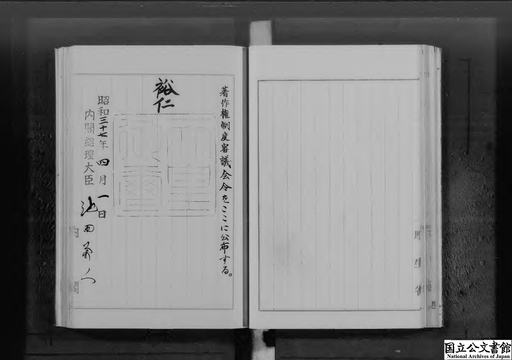 著作権制度審議会令をここに公布する。
裕仁
昭和三十七年四月一日
内閣総理大臣 池田勇人
内閣
国立公文書館
National Archives of Japan